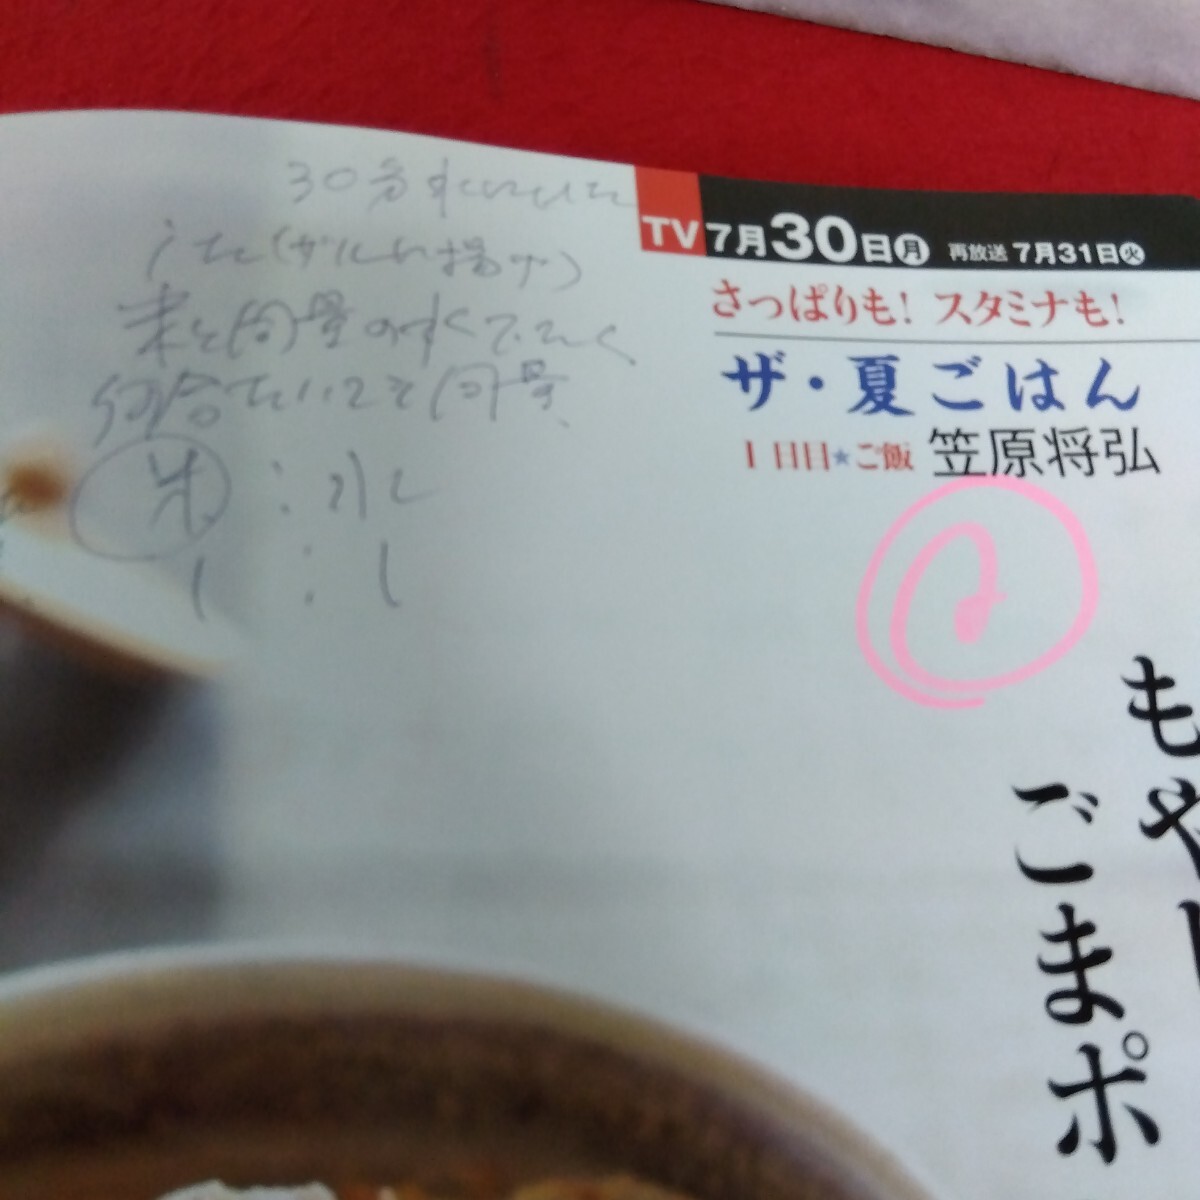 30分すいさいた
した(ザルに揚げ)
米と同量の
同量
米:水
1:1
TV 7月30日(月) 再放送 7月31日(火)
さっぱりも! スタミナも!
ザ・夏ごはん
1日目★ご飯 笠原将弘
もやし
ごまポ